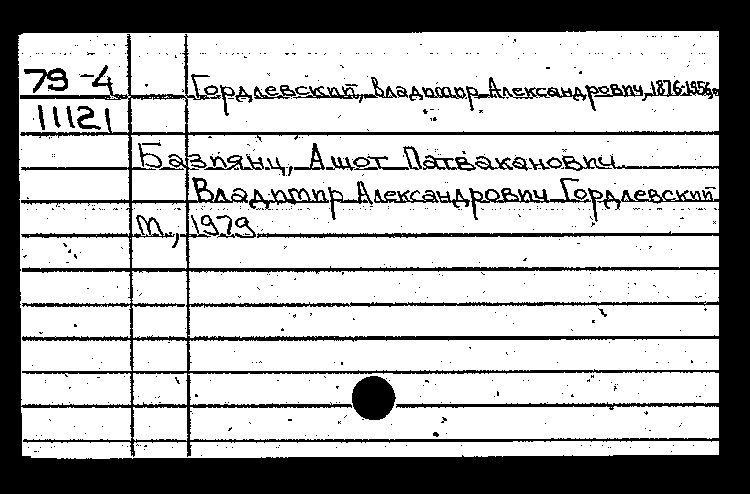 79-4 Гордлевский, Владимир Александрович, 1876-1956.
11121
Базиянц, Ашот Патваканович.
Владимир Александрович Гордлевский
М., 1979